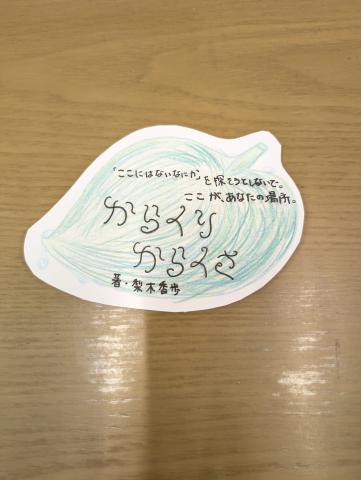 「ここにはないなにか」を探そうとしないで。
ここが、あなたの場所。
からくり
からくさ
著・梨木香歩